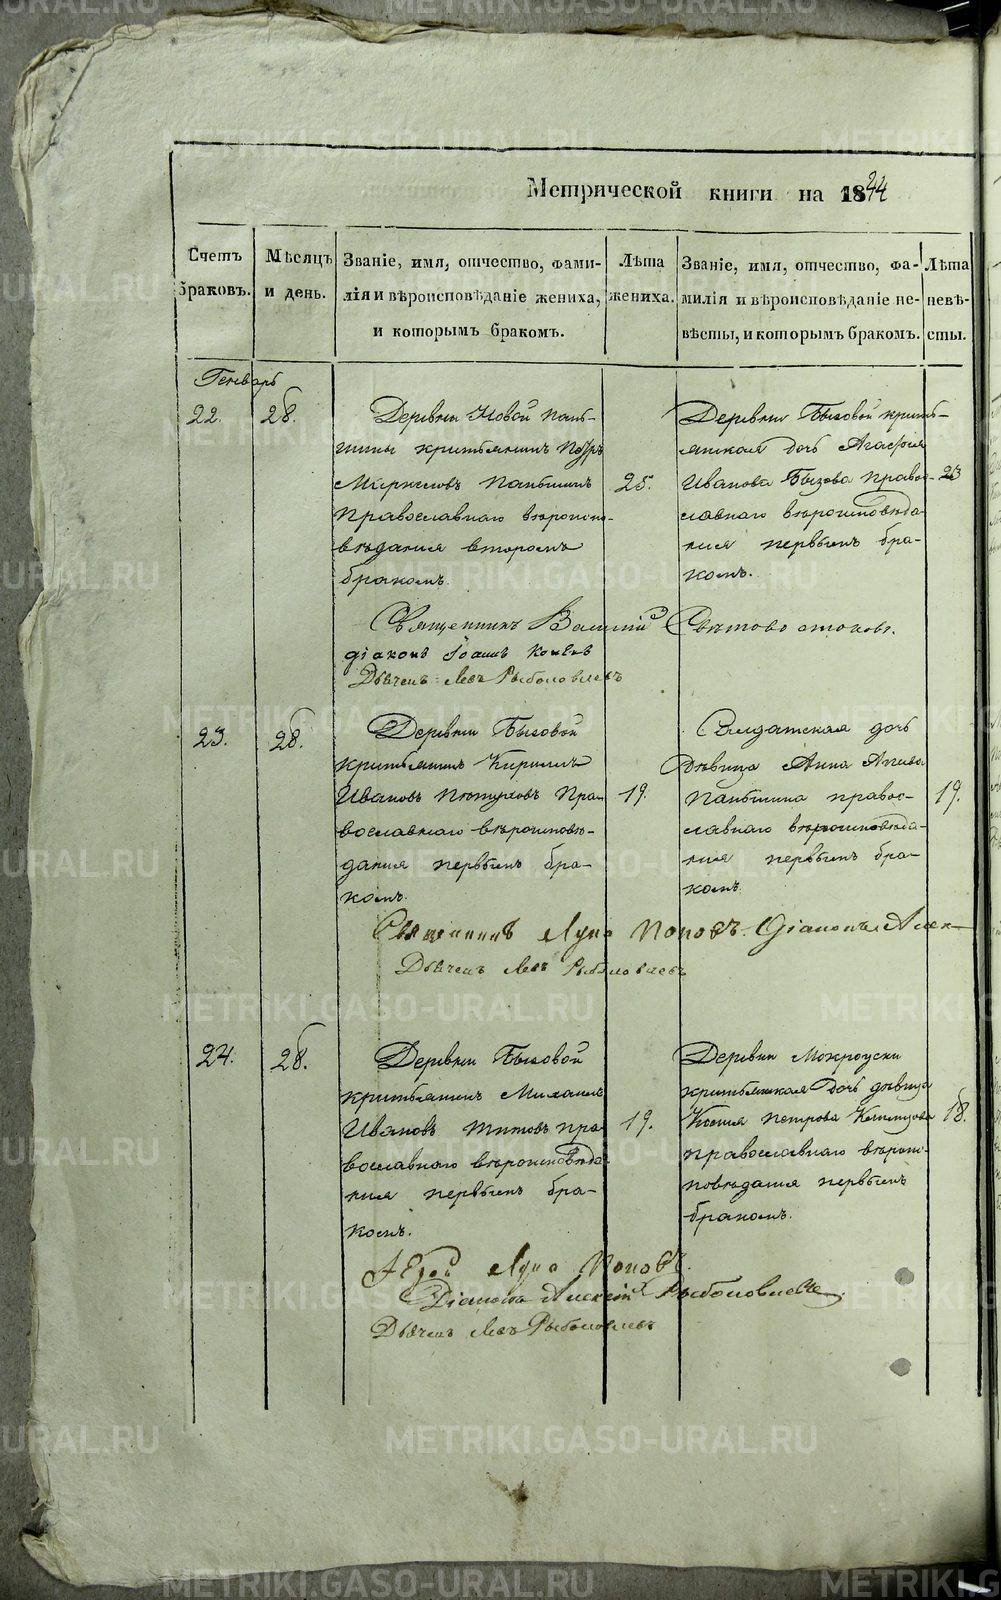 Метрической книги на 1844
Счетъ браковъ.
Мѣсяцъ и день.
Званіе, имя, отчество, фами-
лія и вѣроисповѣданіе жениха,
и которымъ бракомъ.
Лѣта
жениха.
Званіе, имя, отчество, фа-
милія и вѣроисповѣданіе не-
вѣсты, и которымъ бракомъ.
Лѣта
невѣ-
сты.
Генварь
22.
28.
Деревни Новой Пань-
шины крестьянинъ Петръ
Маркеловъ Паньшинъ
Православнаго вѣроиспо-
вѣданія вторымъ
бракомъ.
25.
Деревни Бызовой кресть-
янская дочь Агафія
Иванова Бызова Право-
славнаго вѣроисповѣда-
нія первымъ бра-
комъ.
23
Священникъ Василій
діаконъ Іоаннъ
Дьячекъ Левъ Рыболовлевъ
23.
28.
Деревни Бызовой
крестьянинъ Кириллъ
Ивановъ Пра-
вославнаго вѣроисповѣ-
данія первымъ бра-
комъ.
19.
Солдатская дочь
дѣвица Анна
Паньшина правос-
лавнаго вѣроисповѣда-
нія первымъ бра-
комъ.
19.
Священникъ Лука Поповъ. Діаконъ Алек-
Дьячекъ Левъ Рыболовлевъ
24.
28.
Деревни Бызовой
крестьянинъ Михаилъ
Ивановъ Титовъ пра-
вославнаго вѣроисповѣда-
нія первымъ бра-
комъ.
19.
Деревни Мокроуски
крестьянская дочь дѣвица
Ксенія Петрова
православнаго вѣроис-
повѣданія первымъ
бракомъ.
18.
Іерей Лука Поповъ.
Діаконъ Алексій Рыболовлевъ.
Дьячекъ Левъ Рыболовлевъ
METRIKI.GASO-URAL.RU